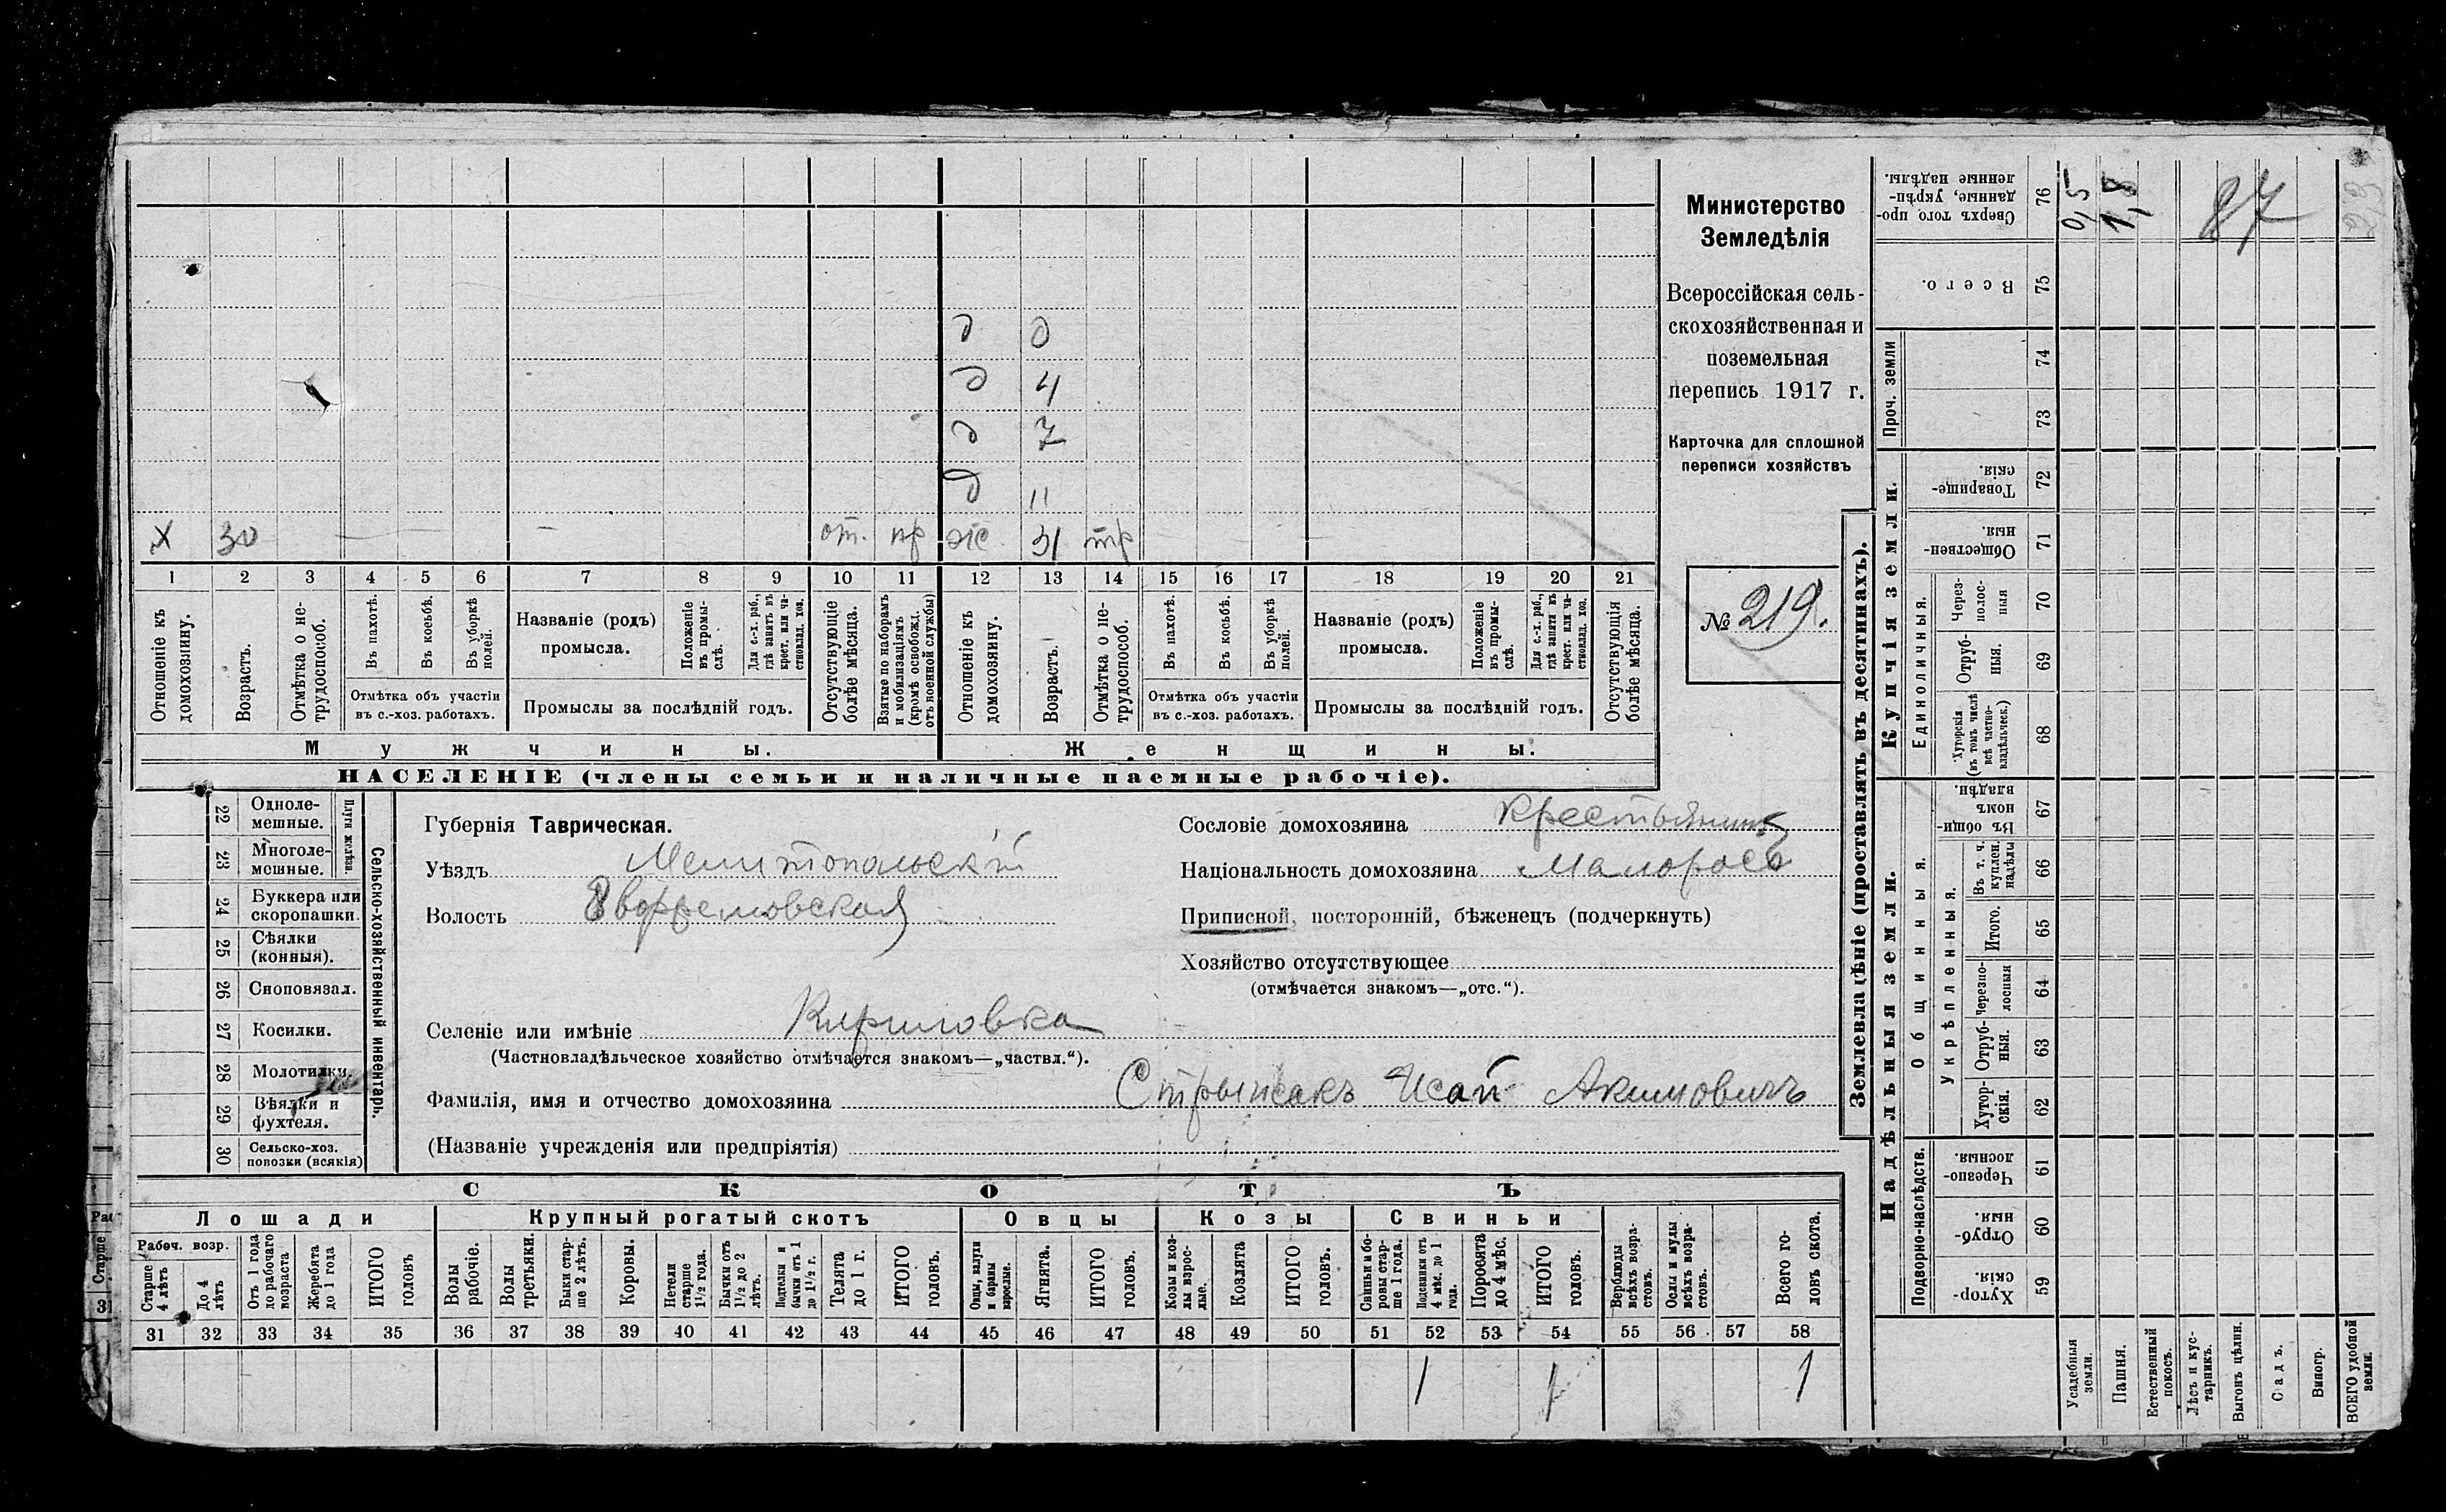 д д
д 4
д 7
д 11
х 30 — — от. пр ж 31 тр
1 2 3 4 5 6 7 8 9 10 11 12 13 14 15 16 17 18 19 20 21
Отношеніе къ домохозяину.
Возрастъ.
Отмѣтка о не-трудоспособ.
Въ пахотѣ.
Въ косьбѣ.
Въ уборкѣ полей.
Отмѣтка объ участіи въ с.-хоз. работахъ.
Названіе (родъ) промысла.
Положеніе въ промы-слѣ.
Для с.-х. раб., гдѣ занятъ въ крест. или ча-стновлад. хоз.
Промыслы за послѣдній годъ.
Отсутствующіе болѣе мѣсяца.
Взятые по наборамъ и мобилизаціямъ (кромѣ освобожд. отъ военной службы)
Отношеніе къ домохозяину.
Возрастъ.
Отмѣтка о не-трудоспособ.
Въ пахотѣ.
Въ косьбѣ.
Въ уборкѣ полей.
Отмѣтка объ участіи въ с.-хоз. работахъ.
Названіе (родъ) промысла.
Положеніе въ промы-слѣ.
Для с.-х. раб., гдѣ заняти въ крест. или ча-стновлад. хоз.
Промыслы за послѣдній годъ.
Отсутствующія болѣе мѣсяца.
Мужчины. Женщины.
НАСЕЛЕНІЕ (члены семьи и наличные наемные рабочіе).
Министерство
Земледѣлія
Всероссійская сель-
скохозяйственная и
поземельная
перепись 1917 г.
Карточка для сплошной
переписи хозяйствъ
№ 219.
22 Одноле-мешные.
23 Многоле-мешные.
Плуги желѣзн.
24 Буккера или скоропашки.
25 Сѣялки (конныя).
26 Сноповязал.
27 Косилки.
28 Молотилки.
29 Вѣялки и фухтеля.
30 Сельско-хоз. повозки (всякія)
Сельско-хозяйственный инвентарь.
Губернія Таврическая.
Уѣздъ Мелитопольскій
Волость
Сословіе домохозяина Крестьянинъ
Національность домохозяина Малоросъ
Приписной, посторонній, бѣженецъ (подчеркнуть)
Хозяйство отсутствующее
(отмѣчается знакомъ—„отс.“).
Селеніе или имѣніе Кириловка
(Частновладѣльческое хозяйство отмѣчается знакомъ—„частвл.“).
Фамилія, имя и отчество домохозяина Стрыжакъ Исай Акимовичъ
(Названіе учрежденія или предпріятія)
СКОТЪ
Лошади Крупный рогатый скотъ Овцы Козы Свиньи
Рабоч. возр.
Старше 4 лѣтъ
До 4 лѣтъ
Отъ 1 года до рабочаго возраста
Жеребята до 1 года
ИТОГО головъ
Волы рабочіе.
Волы третьяки.
Быки стар-ше 2 лѣтъ.
Коровы.
Нетели старше 1½ года.
Бычки отъ 1½ до 2 лѣтъ.
Подтелки и бычки отъ 1 до 1½ г.
Телята до 1 г.
ИТОГО головъ.
Овцы, валухи и бараны взрослые.
Ягнята.
ИТОГО головъ.
Козы и коз-лы взрос-лые.
Козлята
ИТОГО головъ.
Свиньи и бо-ровы стар-ше 1 года.
Подсвинки отъ 4 мѣс. до 1 года.
Поросята до 4 мѣс.
ИТОГО головъ.
Верблюды всѣхъ возра-стовъ.
Ослы и мулы всѣхъ возра-стовъ.
Всего го-ловъ скота.
31 32 33 34 35 36 37 38 39 40 41 42 43 44 45 46 47 48 49 50 51 52 53 54 55 56 57 58
1 1 1
Землевладѣніе (проставлять въ десятинахъ).
Сверхъ того, про-данные, укрѣп-ленные надѣлы. 76 0,5 1,8 87
Всего. 75
Проч. земли
74
73
Купчія земли.
Товарище-скія. 72
Обществен-ныя. 71
Единоличныя.
Через-полос-ныя 70
Отруб-ныя. 69
Хуторскія (въ томъ числѣ всѣ частно-владѣльческ.) 68
Надѣльныя земли.
Общинныя.
Въ общин-номъ владѣн. 67
Укрѣпленныя.
Въ т. ч. куплен. надѣлы 66
Итого. 65
Черезпо-лосныя 64
Отруб-ныя. 63
Хутор-скія. 62
Подворно-наслѣдств.
Черезпо-лосныя. 61
Отруб-ныя. 60
Хутор-скія. 59
Усадебныя земли.
Пашня.
Естественный покосъ.
Лѣсъ и кус-тарникъ.
Выгонъ цѣлин.
Садъ.
Виногр.
ВСЕГО удобной земли.